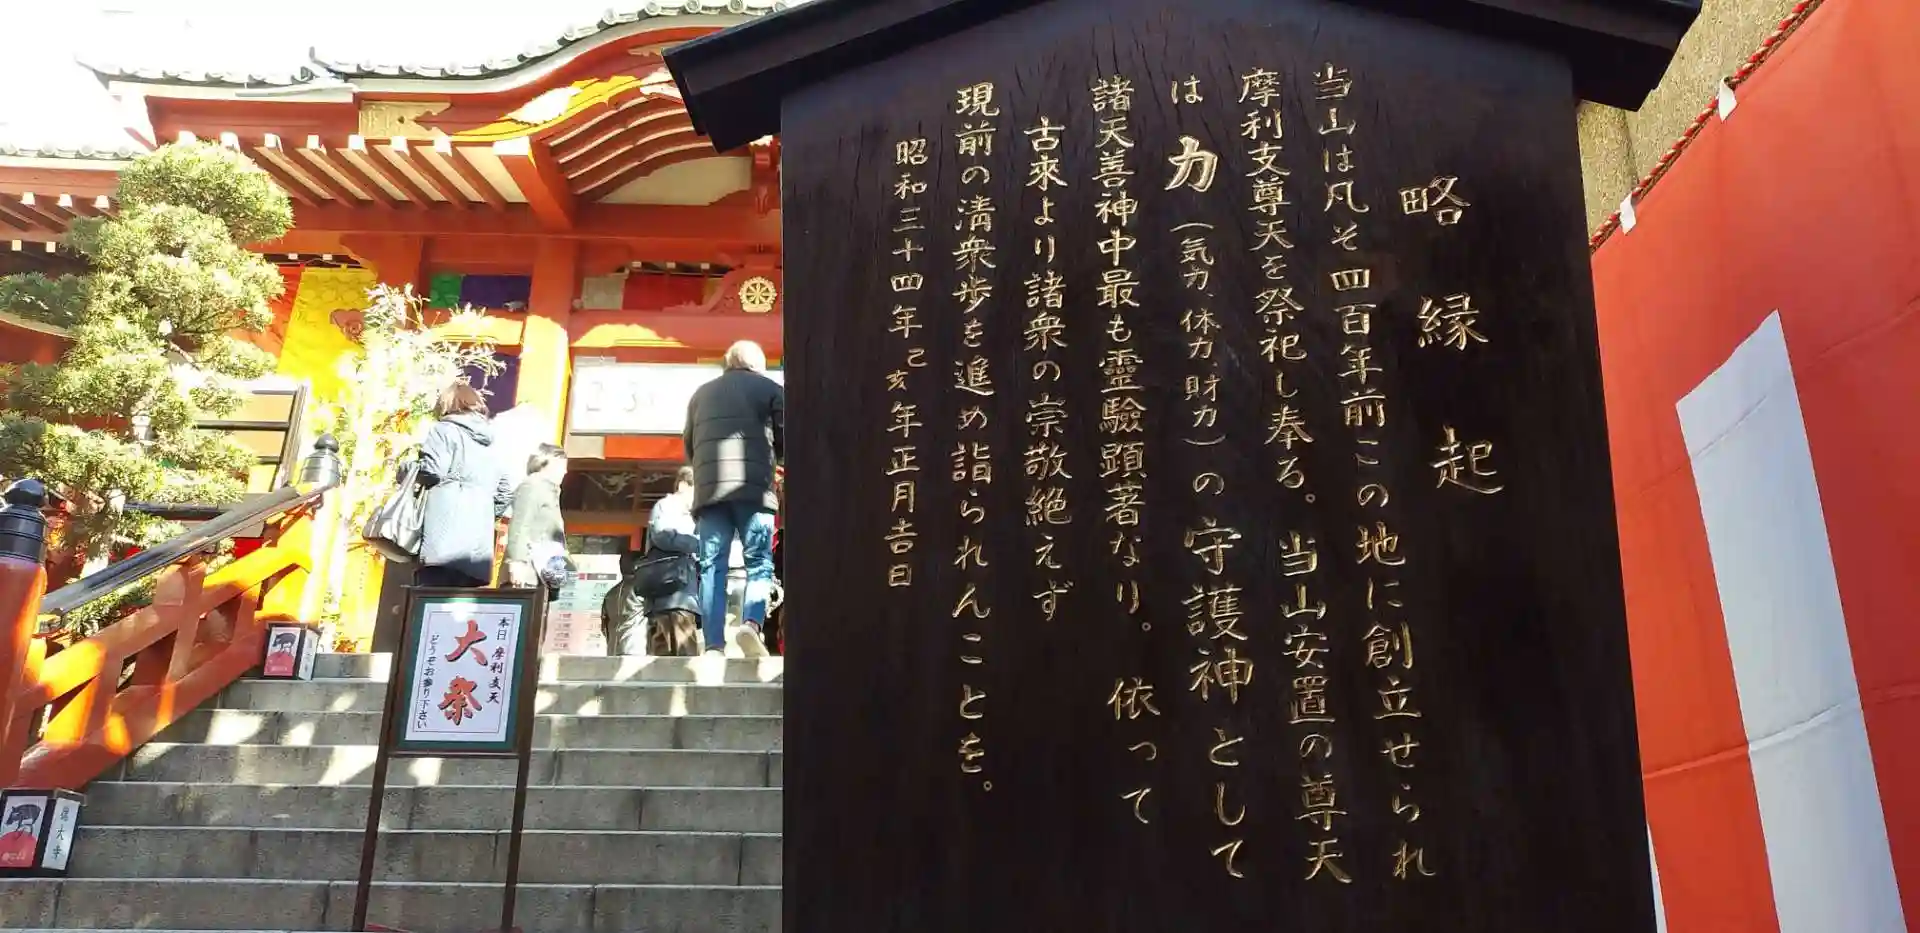 略縁起
当山は凡そ四百年前この地に創立せられ
摩利支尊天を祭祀し奉る。当山安置の尊天
は力（気力、体力、財力）の守護神として
諸天善神中最も霊驗顕著なり。依って
古來より諸衆の崇敬絶えず
現前の清衆歩を進め詣られんことを。
昭和三十四年己亥年正月吉日
本日 摩利支天
大祭
どうぞお参り下さい
徳大寺